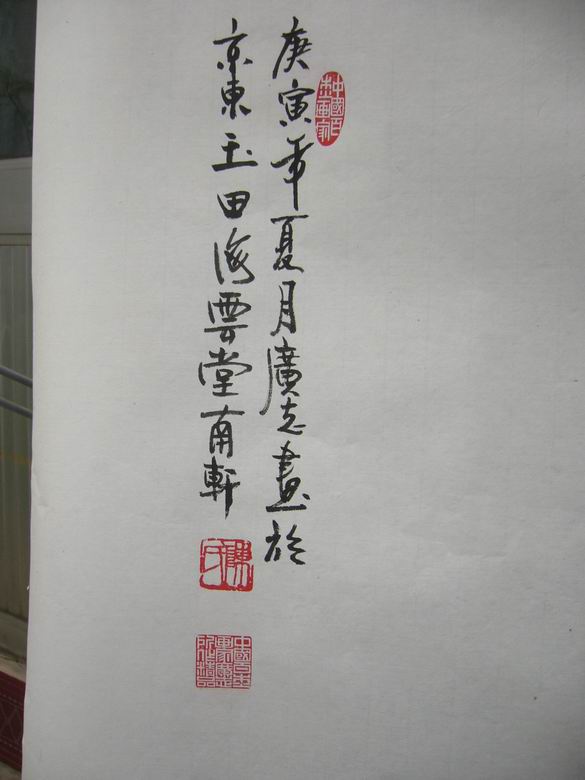 庚寅年夏月廣志畫於
京東玉田海雲堂南軒